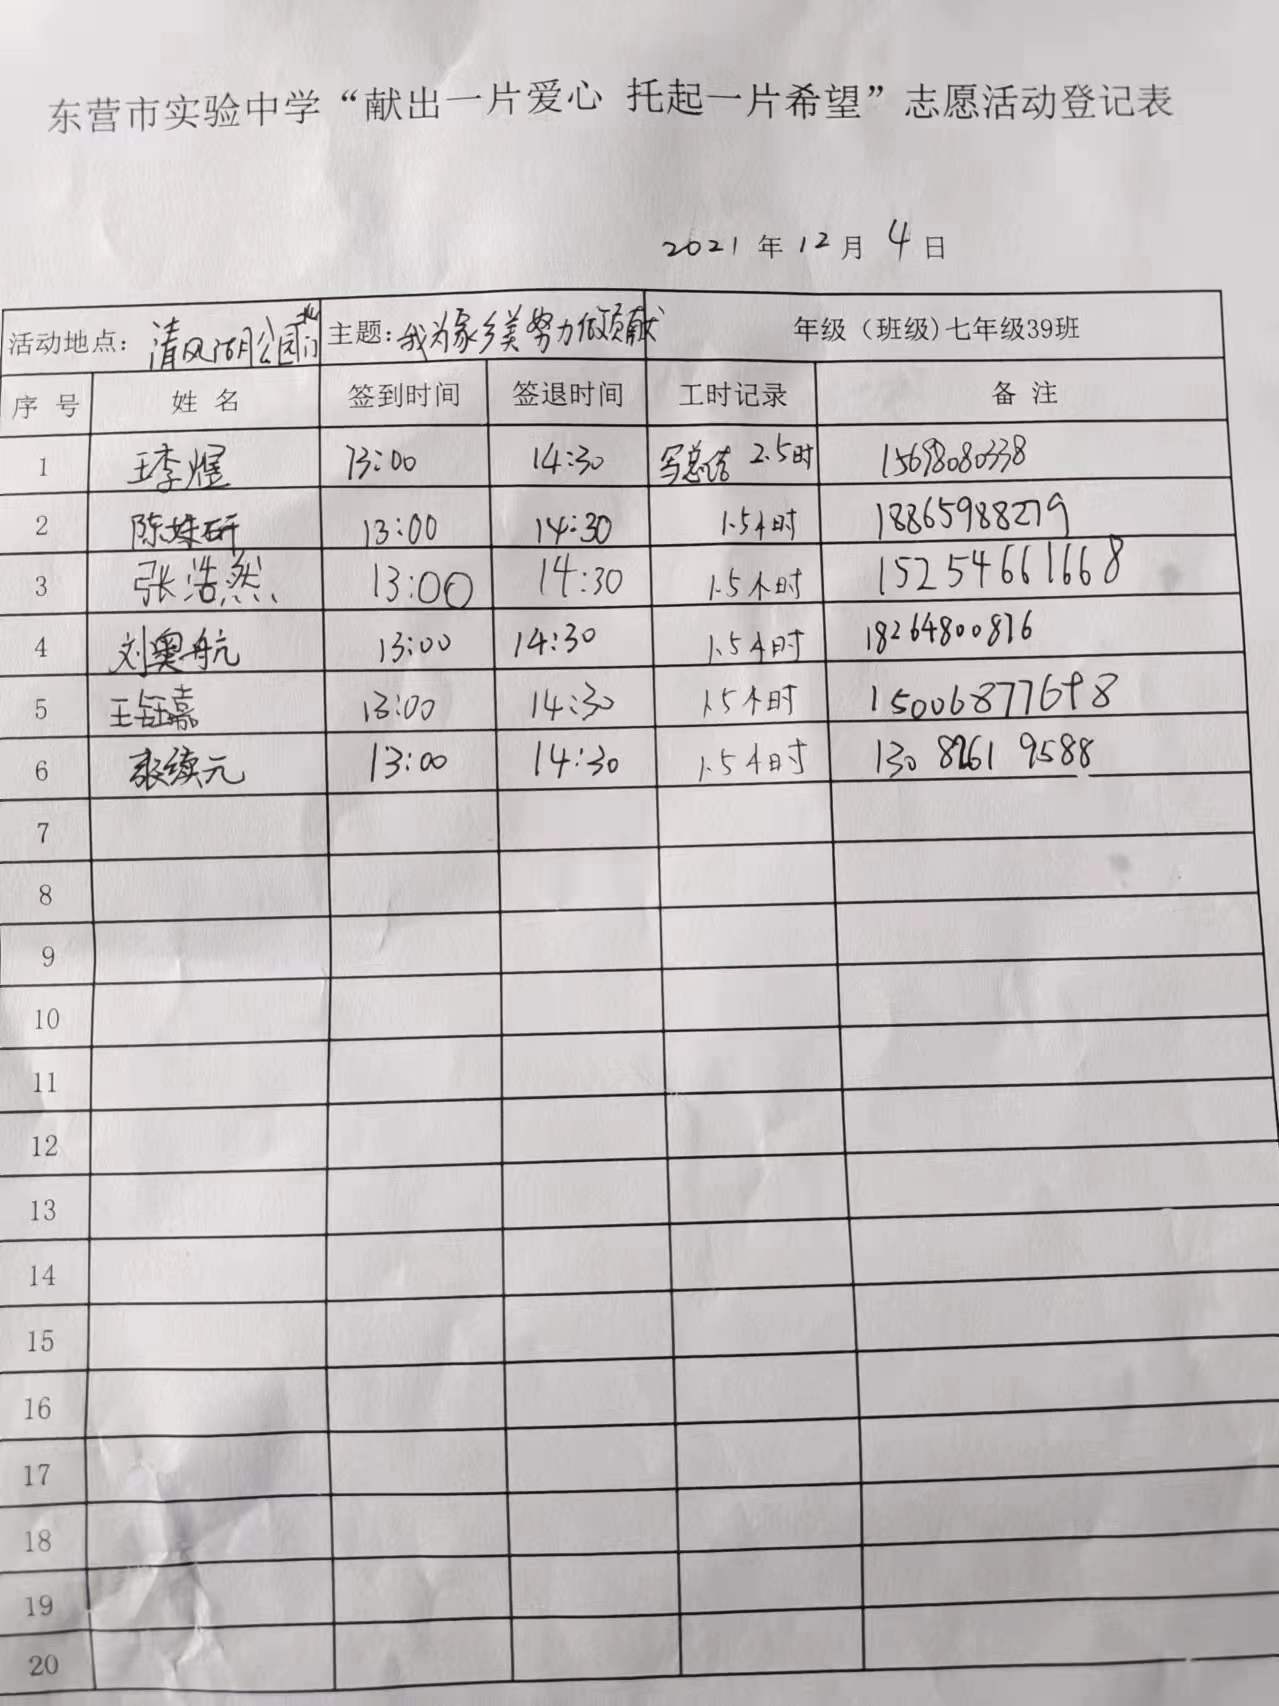 东营市实验中学“献出一片爱心 托起一片希望”志愿活动登记表
2021 年 12 月 4 日
活动地点：清风湖公园北门 主题：我为家乡美努力做贡献 年级（班级)七年级39班
序 号 姓 名 签到时间 签退时间 工时记录 备 注
1 王李煜 13:00 14:30 写总结 2.5时 15698080338
2 陈姝研 13:00 14:30 1.5小时 18865988279
3 张浩然 13:00 14:30 1.5小时 15254661668
4 刘奥航 13:00 14:30 1.5小时 18264800876
5 王钰嘉 13:00 14:30 1.5小时 15006877698
6 张续元 13:00 14:30 1.5小时 130 8261 9588
7
8
9
10
11
12
13
14
15
16
17
18
19
20